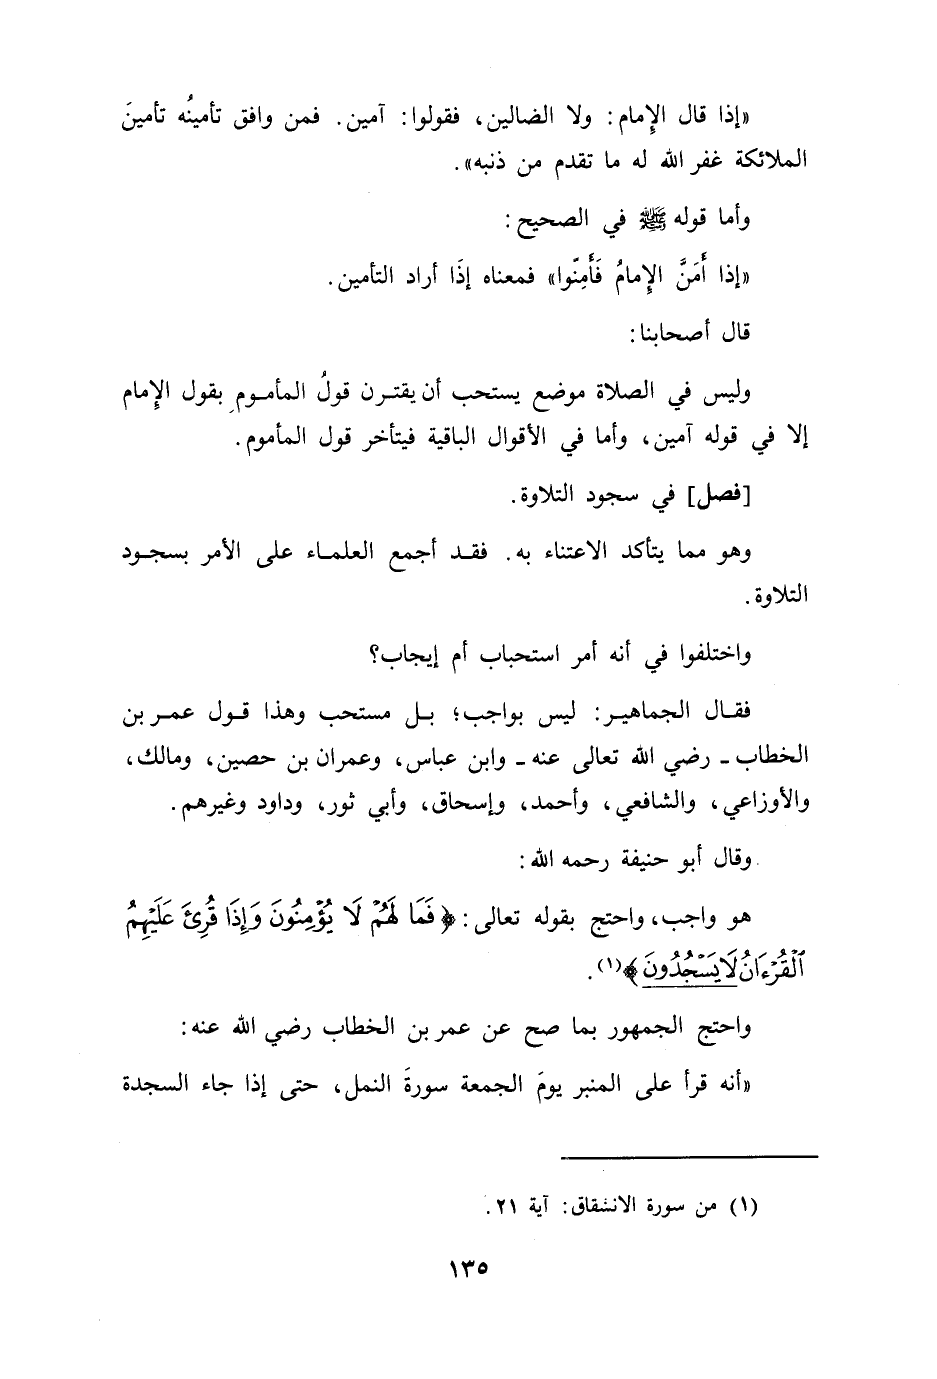 «إذا قال الإمام: ولا الضالين، فقولوا: آمين. فمن وافق تأمينُه تأمينَ
الملائكة غفر الله له ما تقدم من ذنبه».
وأما قوله ﷺ في الصحيح:
«إذا أَمَنَّ الإمامُ فَأَمِنّوا» فمعناه إذَا أراد التأمين.
قال أصحابنا:
وليس في الصلاة موضع يستحب أن يقترن قولُ المأمومِ بقول الإمام
إلا في قوله آمين، وأما في الأقوال الباقية فيتأخر قول المأموم.
[فصل] في سجود التلاوة.
وهو مما يتأكد الاعتناء به. فقد أجمع العلماء على الأمر بسجود
التلاوة.
واختلفوا في أنه أمر استحباب أم إيجاب؟
فقال الجماهير: ليس بواجب؛ بل مستحب وهذا قول عمر بن
الخطاب - رضي الله تعالى عنه - وابن عباس، وعمران بن حصين، ومالك،
والأوزاعي، والشافعي، وأحمد، وإسحاق، وأبي ثور، وداود وغيرهم.
وقال أبو حنيفة رحمه الله:
هو واجب، واحتج بقوله تعالى: ﴿فَمَا لَهُمْ لَا يُؤْمِنُونَ وَإِذَا قُرِئَ عَلَيْهِمُ
ٱلْقُرْءَانُ لَا يَسْجُدُونَ﴾(١).
واحتج الجمهور بما صح عن عمر بن الخطاب رضي الله عنه:
«أنه قرأ على المنبر يومَ الجمعة سورةَ النمل، حتى إذا جاء السجدة
(١) من سورة الانشقاق: آية ٢١.
١٣٥